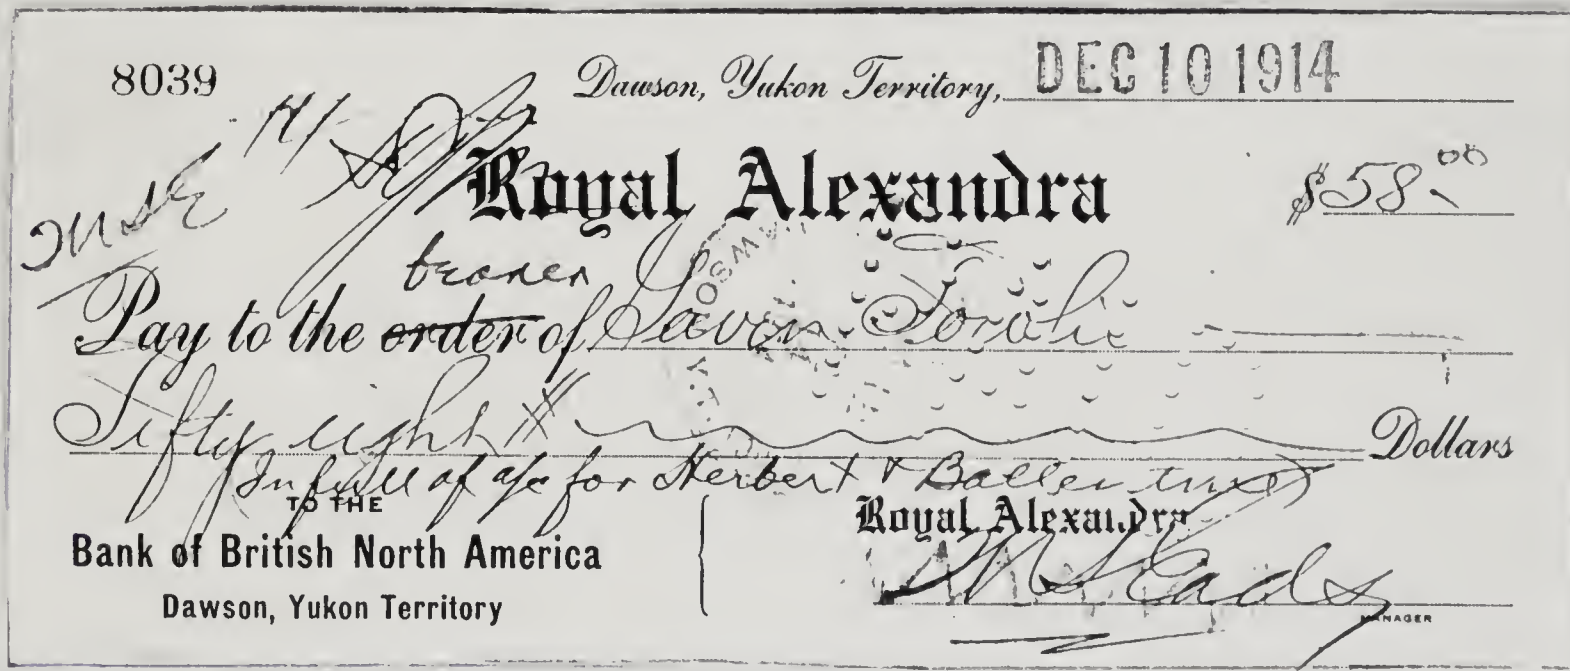 8039
Dawson, Yukon Territory, DEC 10 1914
Royal Alexandra
$58.00
bearer
Pay to the order of Gavin Fowlie
Fifty eight
Dollars
In full of a/c for Herbert & Ballentine
TO THE
Bank of British North America
Dawson, Yukon Territory
Royal Alexandra
MANAGER